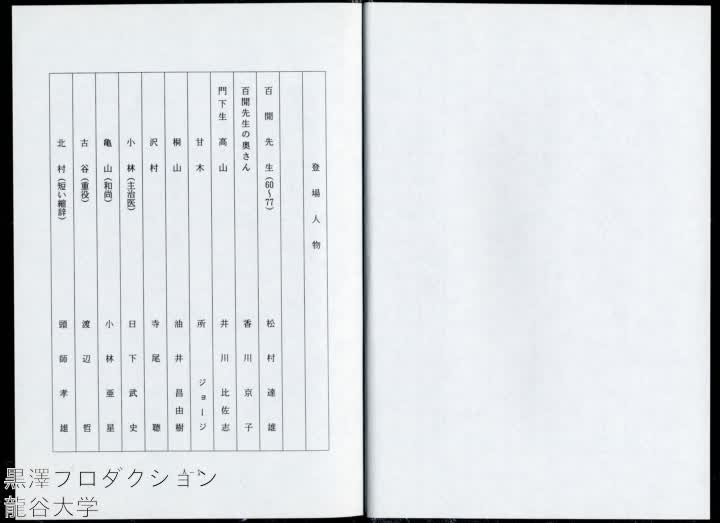 登場人物
百閒先生(60〜77) 松村達雄
百閒先生の奥さん 香川京子
門下生 高山 井川比佐志
甘木 所 ジョージ
桐山 油井昌由樹
沢村 寺尾聰
小林(主治医) 日下武史
亀山(和尚) 小林亜星
古谷(重役) 渡辺哲
北村(短い縮辞) 頭師孝雄
黒澤プロダクション
龍谷大学